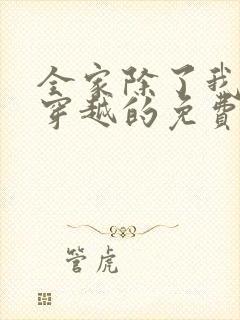 全家除了我
穿越的免费
管虎